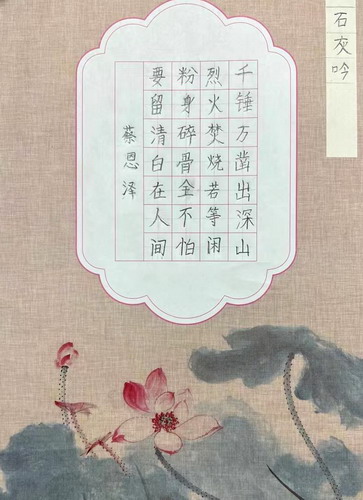 石灰吟
千锤万凿出深山
烈火焚烧若等闲
粉身碎骨全不怕
要留清白在人间
蔡恩泽